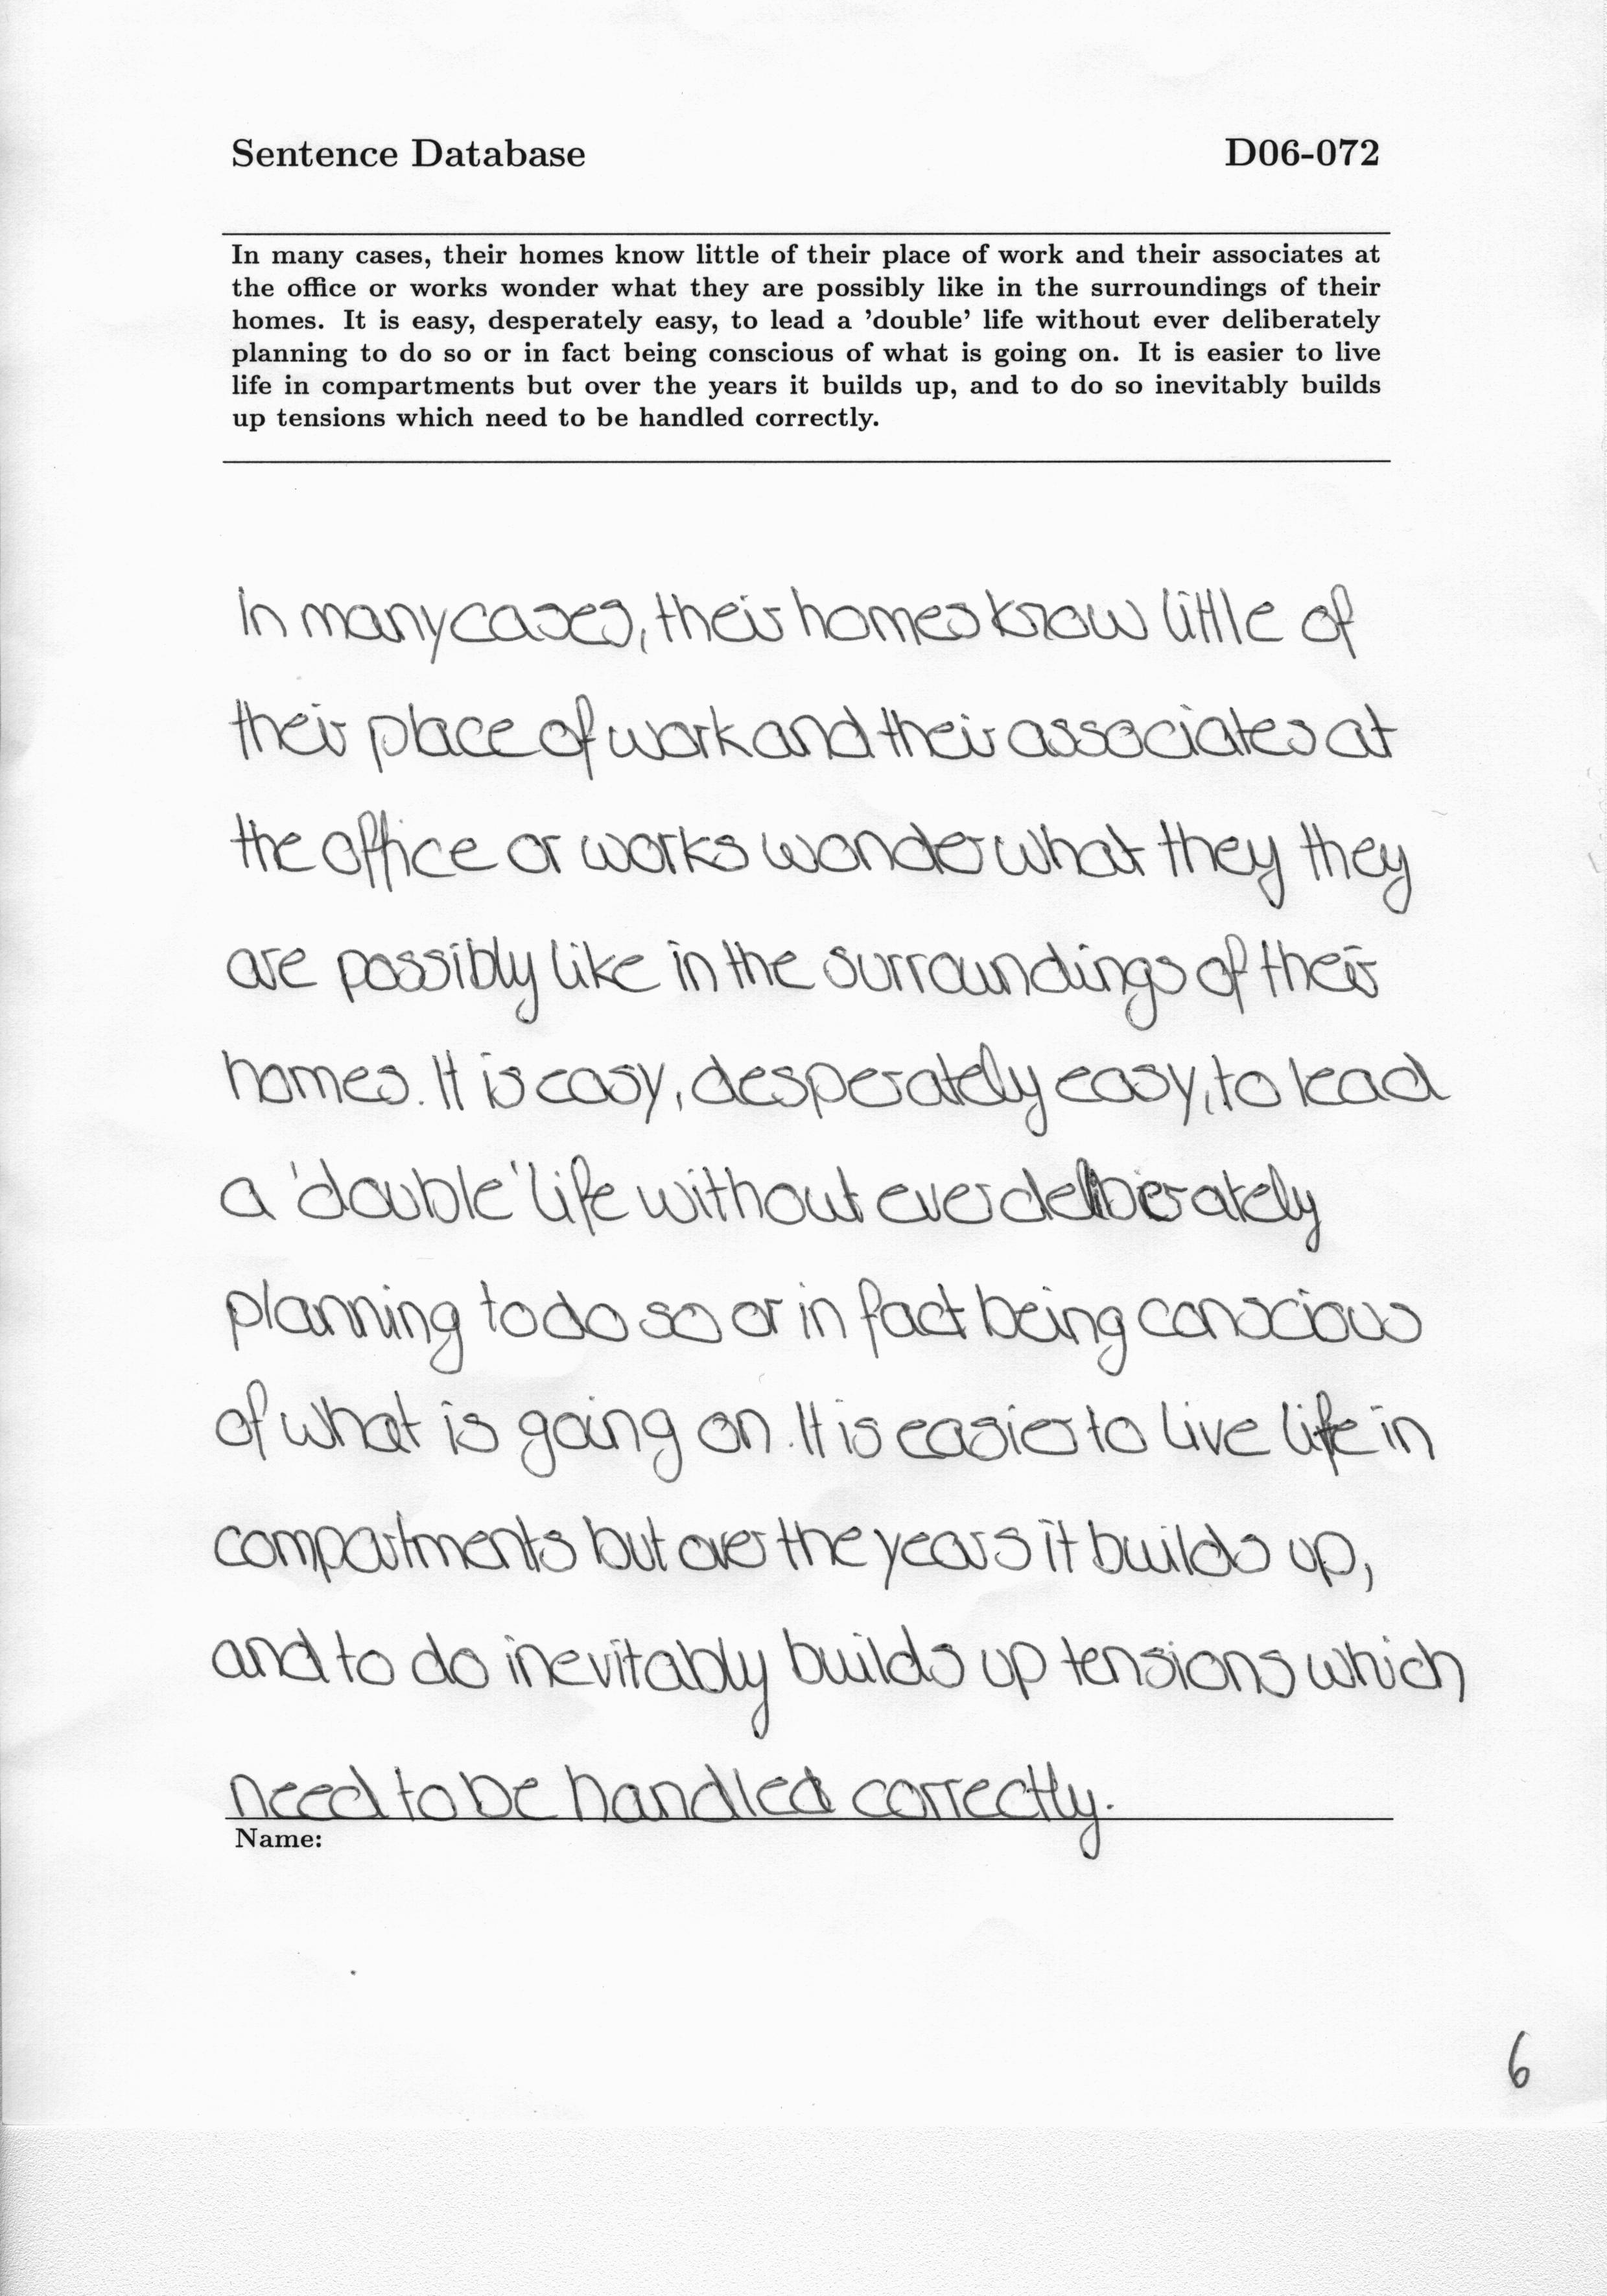 Sentence Database D06-072
In many cases, their homes know little of their place of work and their associates at
the office or works wonder what they are possibly like in the surroundings of their
homes. It is easy, desperately easy, to lead a 'double' life without ever deliberately
planning to do so or in fact being conscious of what is going on. It is easier to live
life in compartments but over the years it builds up, and to do so inevitably builds
up tensions which need to be handled correctly.
In many cases, their homes know little of
their place of work and their associates at
the office or works wonder what they they
are possibly like in the surroundings of their
homes. It is easy, desperately easy, to lead
a 'double' life without ever deliberately
planning to do so or in fact being conscious
of what is going on. It is easier to live life in
compartments but over the years it builds up,
and to do inevitably builds up tensions which
need to be handled correctly.
Name:
6